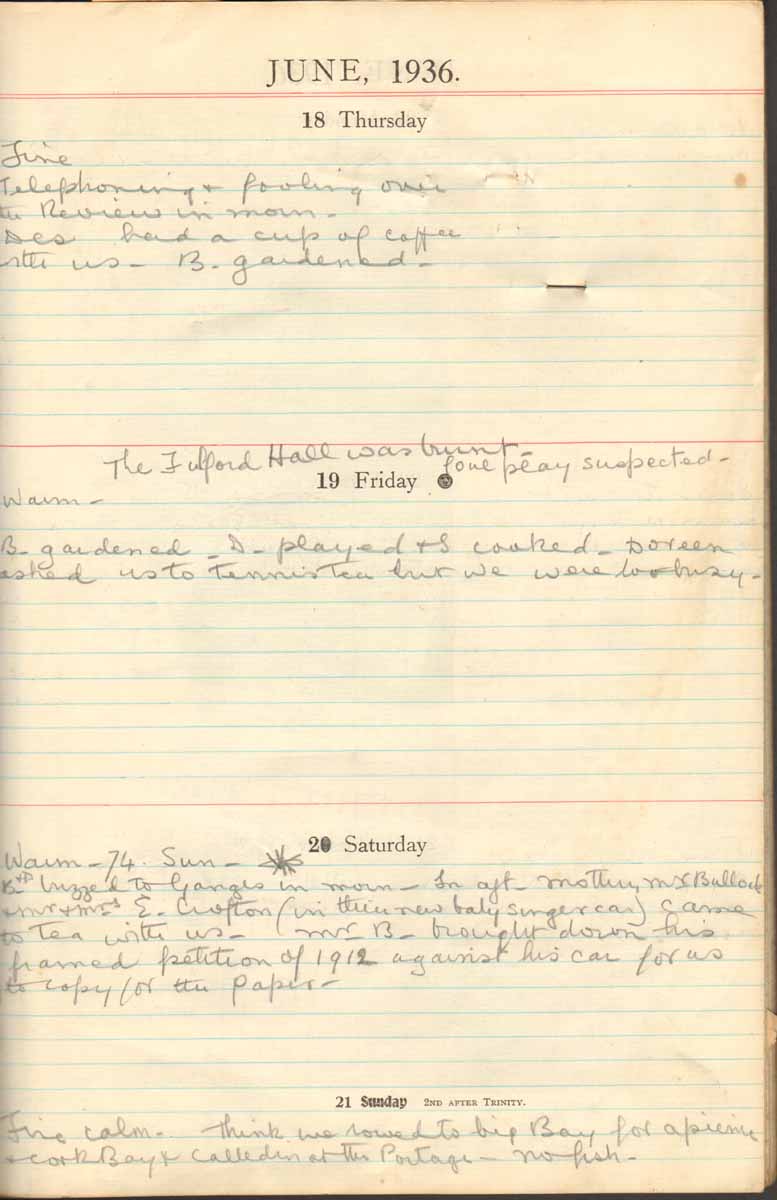 JUNE, 1936.
18 Thursday
Fine
Telephoning & fooling over
the Review in morn -
Des had a cup of coffee
with us - B. gardened -
The Fulford Hall was burnt -
foul play suspected -
19 Friday
Warm -
B - gardened - D - played & I cooked - Doreen
asked us to tennis tea but we were too busy -
20 Saturday
Warm - 74. Sun -
buzzed to Ganges in morn - In aft - mother, Mr Bullock
& Mr & Mrs E. Crofton (in their new baby singer car) came
to Tea with us - Mr B - brought down his
framed petition of 1912 against his car for us
to copy for the paper -
21 Sunday 2ND AFTER TRINITY.
Fine calm - Think we rowed to big Bay for a picnic
& cork Bay & called in at the Portage - no fish -